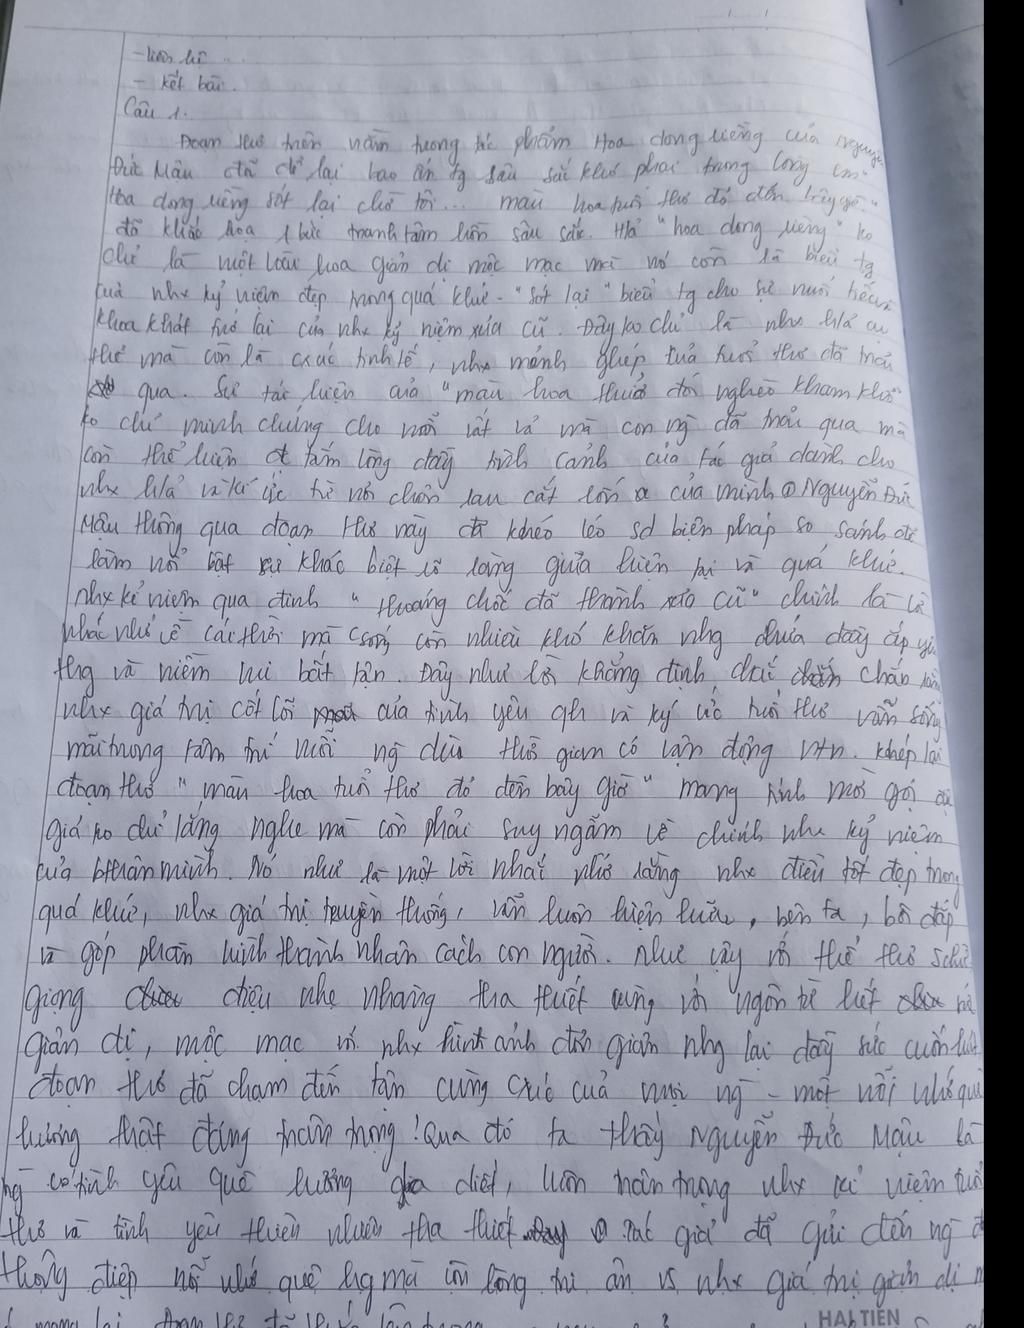 - liên hệ ..
- kết bài.
Câu 1.
Đoạn thơ trên nằm trong tác phẩm Hoa dong riềng của Nguyễn
Đức Mậu đã để lại bao ấn tg sâu sắc khó phai trong lòng em.
"Hoa dong riềng sót lại chờ tôi... màu hoa tuổi thơ đó đến bây giờ."
đã khắc họa 1 bức tranh tâm hồn sâu sắc. H/ả "hoa dong riềng" ko
chỉ là một loài hoa giản dị mộc mạc mà nó còn là biểu tg
của nhx kỷ niệm đẹp trong quá khứ. "Sót lại" biểu tg cho sự nuối tiếc,
khoa khát trở lại của nhx kỷ niệm xưa cũ. Đây ko chỉ là nhx h/ả cụ
thể mà còn là cxúc tinh tế, nhx mảnh ghép tuổi thơ đã trải
qua. Sự tái hiện của "màu hoa thuở đói nghèo kham khổ"
ko chỉ minh chứng cho nỗi vất vả mà con ng đã trải qua mà
còn thể hiện tấm lòng đầy tình cảnh của tác giả dành cho
nhx h/ả và kí ức từ nơi chôn rau cắt rốn của mình Nguyễn Đức
Mậu thông qua đoạn thơ này đã khéo léo sd biện pháp so sánh để
làm nổi bật sự khác biệt rõ ràng giữa hiện tại và quá khứ.
nhx kỉ niệm qua đình "thoáng chốc đã thành xưa cũ" chính là lời
nhắc nhớ về cái thời mà csống còn nhiều khó khăn nhg chứa đầy ắp yêu
thg và niềm vui bất tận. Đây như lời khẳng định chắc chắn rằng
nhx giá trị cốt lõi của tình yêu qh và ký ức tuổi thơ vẫn sống
mãi trong tâm trí mỗi ng dù thời gian có vận động ntn. Khép lại
đoạn thơ "màu hoa tuổi thơ đó đến bây giờ" mang tính mời gọi độc
giả ko chỉ lắng nghe mà còn phải suy ngẫm về chính nhx kỷ niệm
của bthân mình. Nó như là một lời nhắc nhớ rằng nhx điều tốt đẹp trong
quá khứ, nhx giá trị truyền thống, vẫn luôn hiện hữu, bên ta, bồi đắp
và góp phần hình thành nhân cách con người. Như vậy với thể thơ 5chữ
giọng điệu nhẹ nhàng tha thiết cùng với ngôn từ hết
giản dị, mộc mạc với nhx hình ảnh đơn giản nhg lại đầy sức cuốn hút
đoạn thơ đã chạm đến tận cùng cxúc của mọi ng - một nỗi nhớ quê
hương thật đáng trân trọng! Qua đó ta thấy Nguyễn Đức Mậu là
ng có tình yêu quê hương da diết, luôn trân trọng nhx kỉ niệm tuổi
thơ và tình yêu thiên nhiên tha thiết. tác giả đã gửi đến ng đ
thông điệp nỗi nhớ quê hg mà còn lòng tri ân vs nhx giá trị giản dị m
HẢI TIẾN